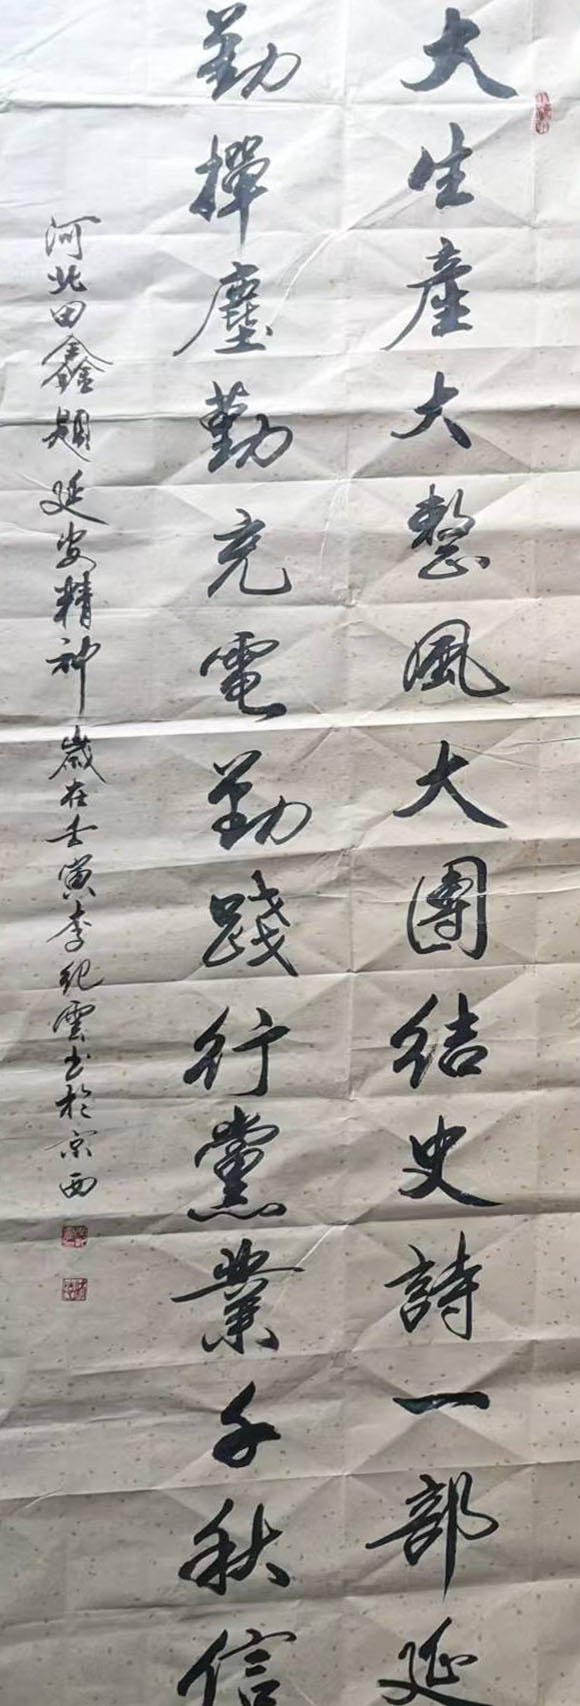 大生產大整風大團結史詩一部延
勤撣塵勤充電勤踐行黨業千秋信
河北田鑫題延安精神歲在壬寅李紀雲书於京西